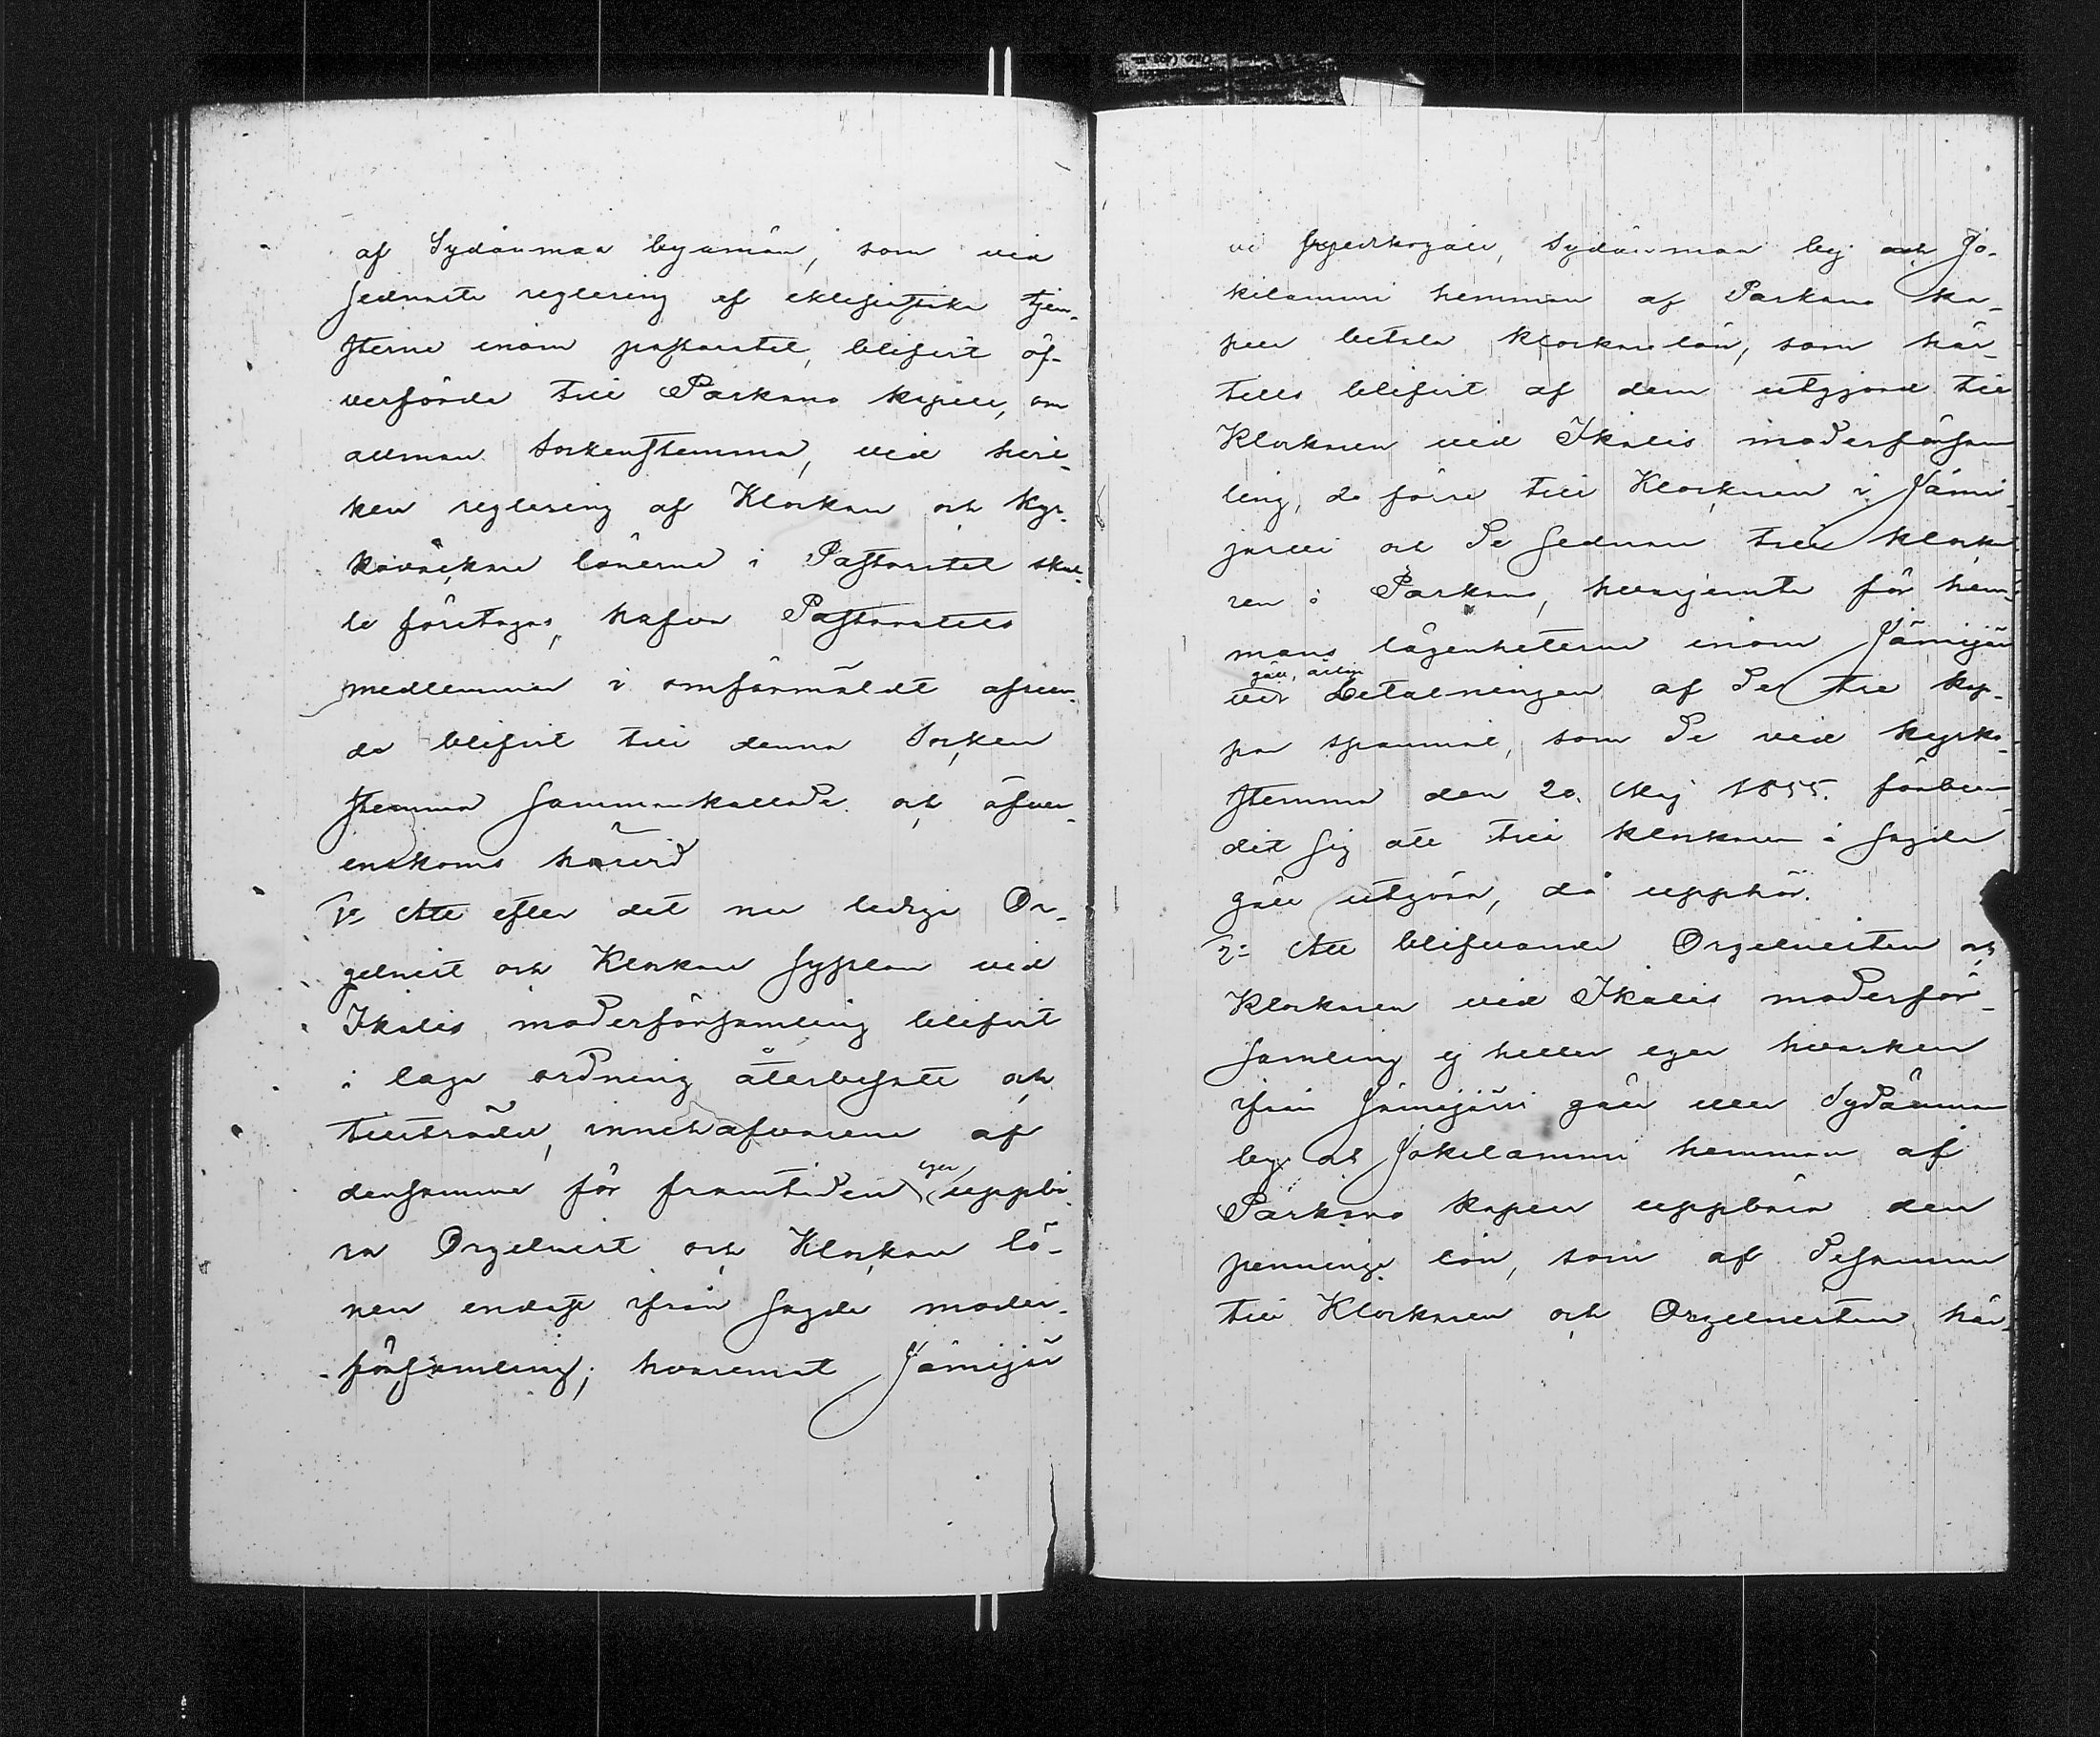 af Sydänmaa byamän, som vid
sednaste reglering af eklesiastika tjen-
sterne inom pastoratet, blifvit öf-
verförde till Parkano kapell, om
allmän Sockenstemma, vid hvil-
ken reglering af Klockare och kyr-
koväktare lönerna i Pastoratet skul-
le företagas, hafva Pastoratets
medlemmar i omförmäldt afseen-
de blifvit till denna Socken
stemma sammankallade och öfver-
enskoms härvid
1o Att efter det nu lediga Or-
gelnist och Klockare sysslan vid
Ikalis moderförsamling blifvit
i laga ordning återbesatt och
tillträdd, innehafvaren af
densamma för framtiden eger uppbä-
ra Orgelnist och Klockare lö-
nen endast ifrån sagde moder-
församling; hvaremot Jämijär
vi kapellboar, Sydänmaa by och Jo-
kilammi hemman af Parkano ka-
pell betala klockarelön, som här-
tills blifvit af dem utgjord till
Klockaren vid Ikalis moderförsam
ling, de förre till Klockaren i Jämi
järvi och de sednare till klocka
ren i Parkano, hvarjemte för hem-
mans lägenheterne inom Jämijär
vi gäll, årliga betalningen af de tre kap-
par spanmål, som de vid kyrko-
stemma den 20. Maj 1855. förbun-
dit sig att till klockaren i sagde
gäll utgöra, då upphör.
2o Att blifvande Orgelnisten och
Klockaren vid Ikalis moderför-
samling ej heller eger hvarken
ifrån Jämijärvi gäll eller Sydänmaa
by och Jokilammi hemman af
Parkano kapell uppbära den
penninge lön, som af desamma
till Klockaren och Orgelnisten här-